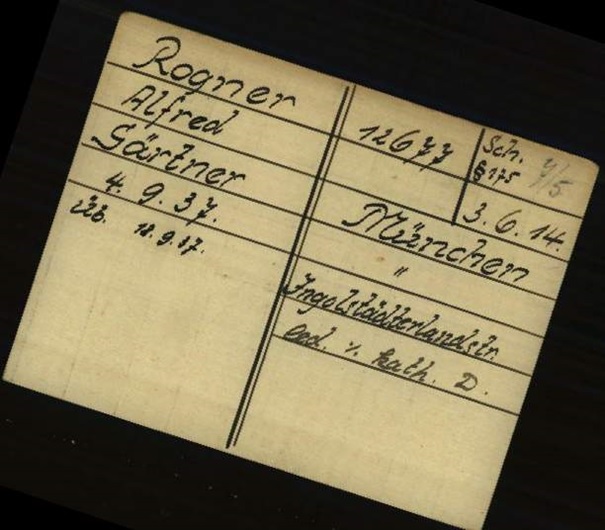 Rogner
Alfred
Gärtner
4. 9. 37.
18.9.37.
12677
Sch.
§175
3. 6. 14.
München
"
Ingolstädterlandstr.
led. kath. D.